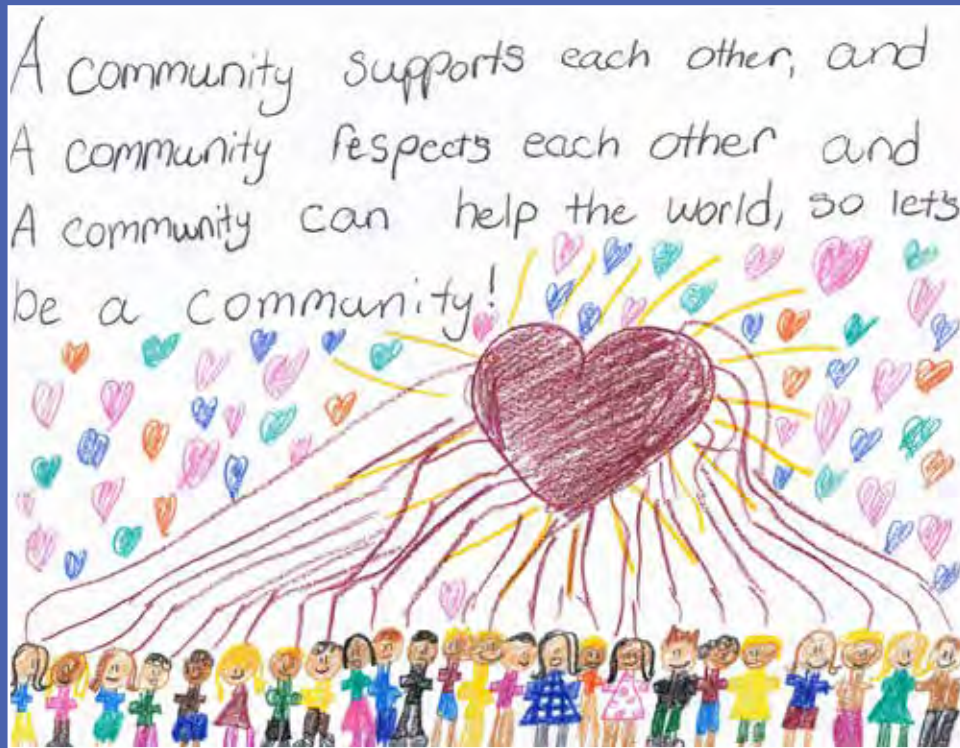 A community supports each other, and
A community respects each other and
A community can help the world, so let's
be a community!